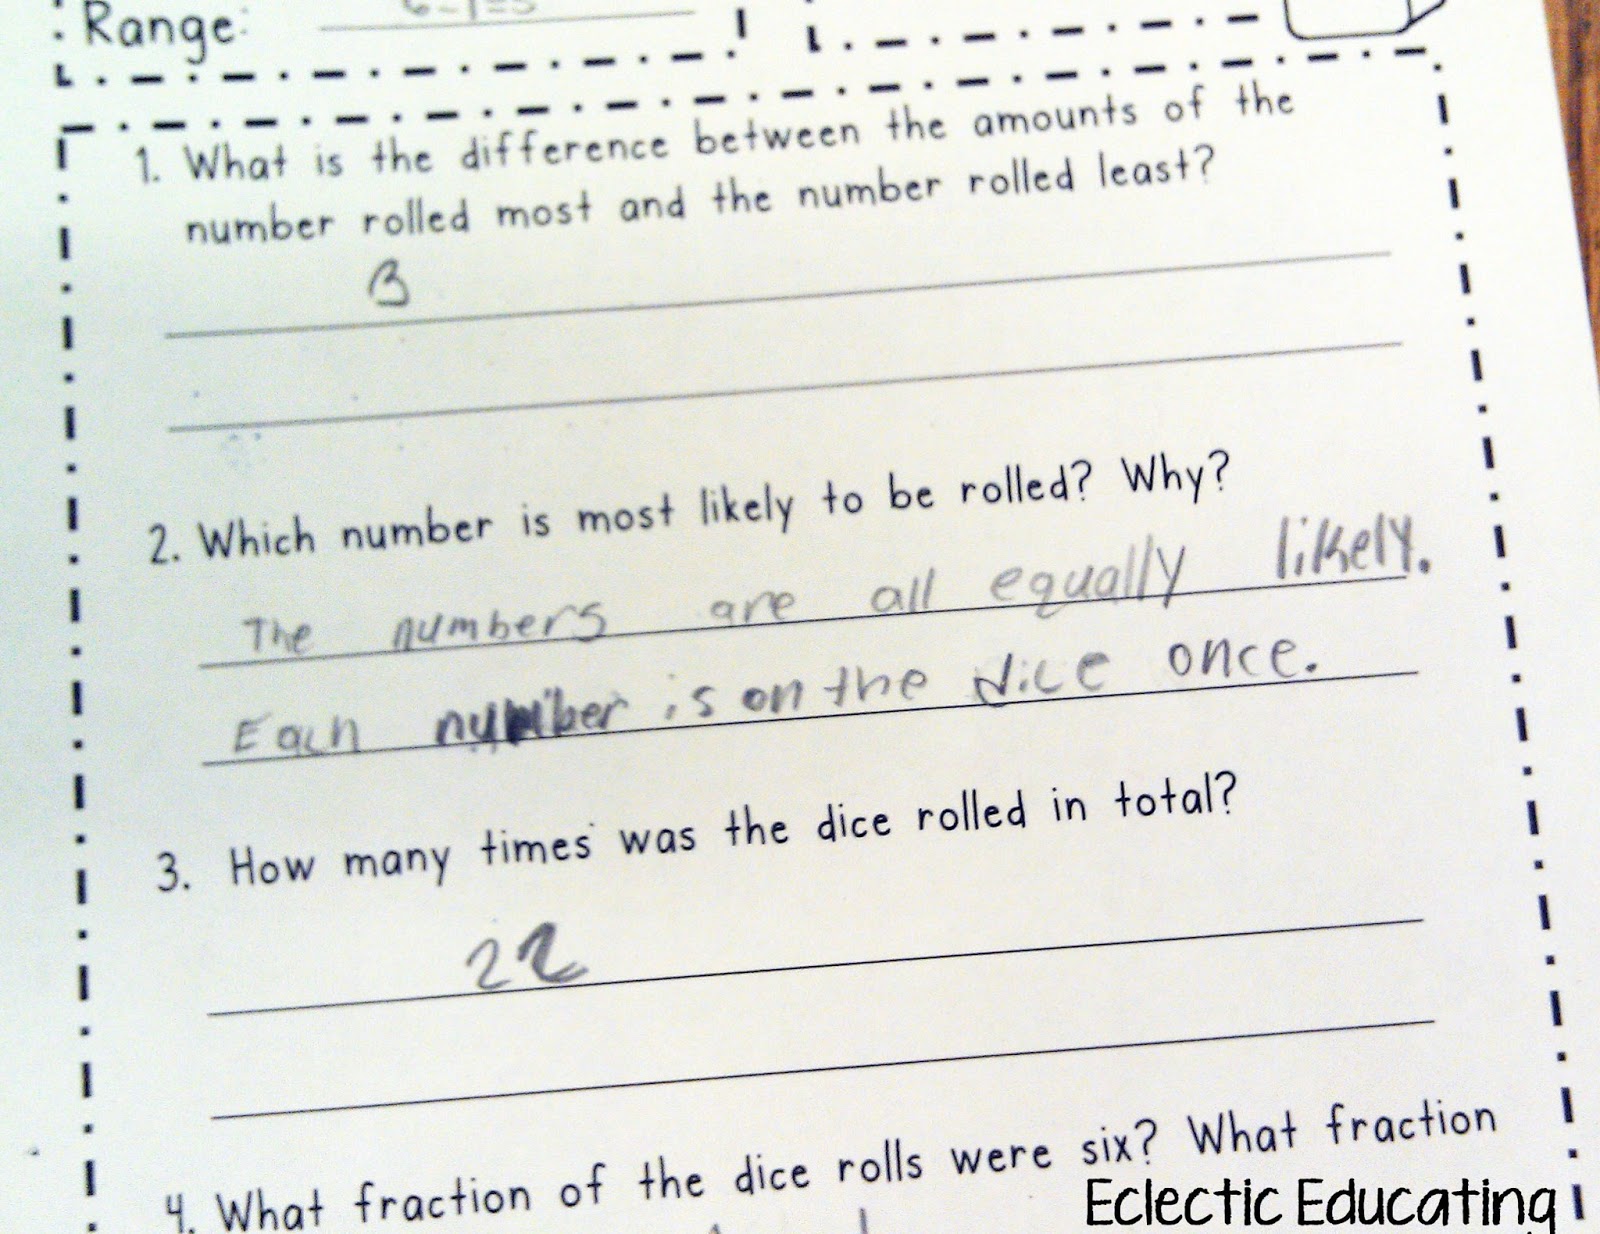 Range: 6-1=5
1. What is the difference between the amounts of the
number rolled most and the number rolled least?
3
2. Which number is most likely to be rolled? Why?
The numbers are all equally likely.
Each number is on the dice once.
3. How many times was the dice rolled in total?
22
4. What fraction of the dice rolls were six? What fraction
Eclectic Educating